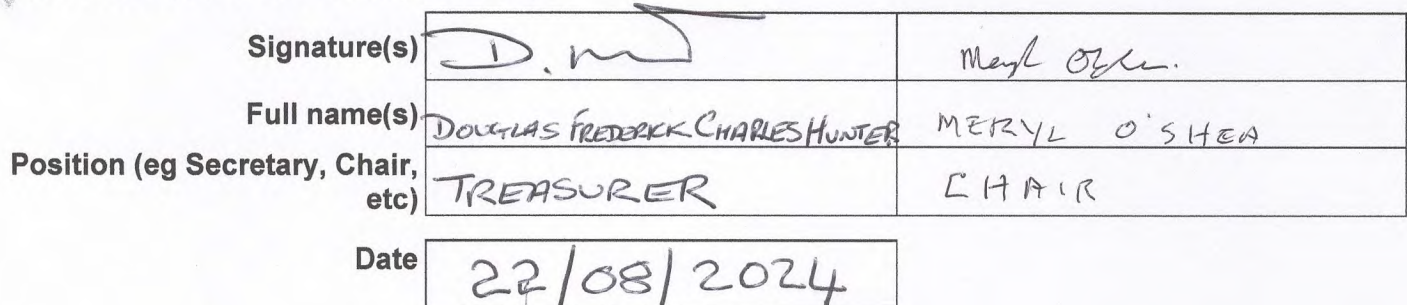 Signature(s) D.
Full name(s) DOUGLAS FREDERICK CHARLES HUNTER MERYL O'SHEA
Position (eg Secretary, Chair,
etc) TREASURER CHAIR
Date 22/08/2024